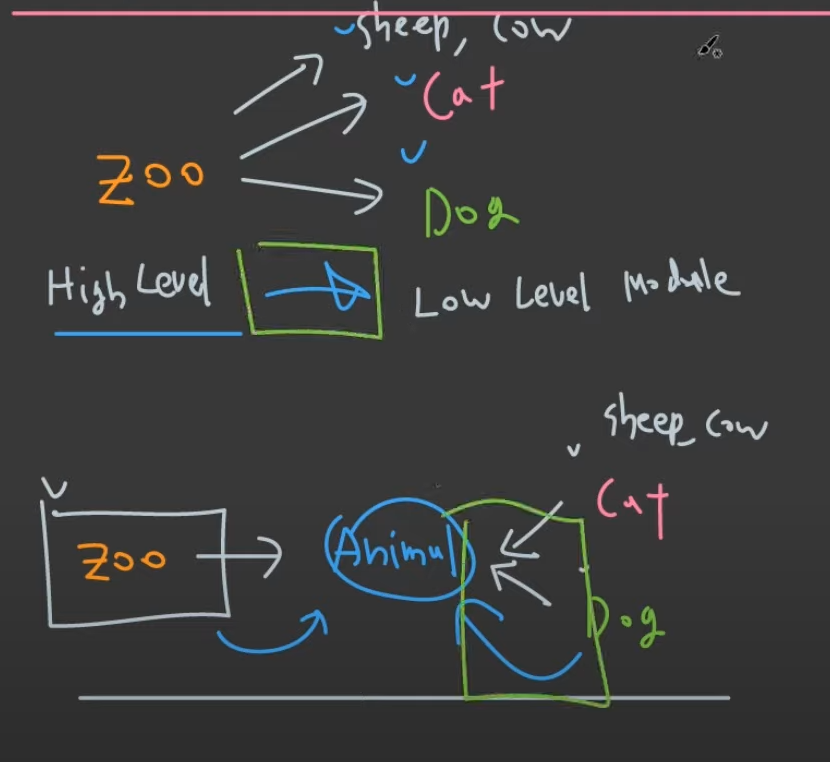 sheep, cow
Cat
Zoo
Dog
High Level
Low Level Module
sheep cow
Cat
Zoo
Animal
Dog